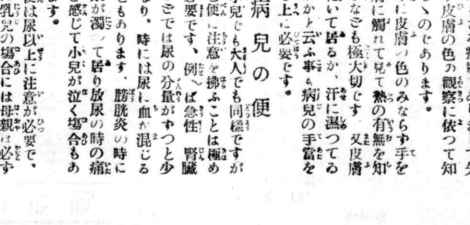 皮膚の色の觀察に依つて知
ゝのであります。
に皮膚の色のみならず手を
に觸れて見て熱の有無を知
なども極大切です　又皮膚
いて居るか、汗に濕つてゐ
かと云ふ事も病兒の手當を
上に必要です。
病兒の便
小兒でも大人でも同樣ですが
に注意を拂ふことは極め
必要です、例へば急性　腎臟
でどでは尿の分量がずつと少
なり、時には尿に血が混じる
もあります、膀胱炎の時に
が濁つて居り放尿の時の痛
感じて小兒が泣く場合もあ
ます。
便は尿以上に注意が必要で、
乳兒の場合には母親は必ず